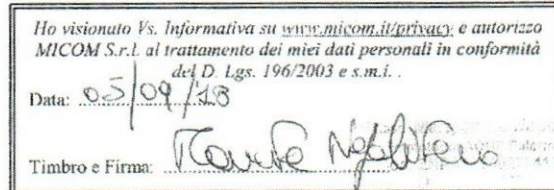 Ho visionato Vs. Informativa su www.micom.it/privacy e autorizzo
MICOM S.r.l. al trattamento dei miei dati personali in conformità
del D. Lgs. 196/2003 e s.m.i. .
Data: 05/09/18
Timbro e Firma: